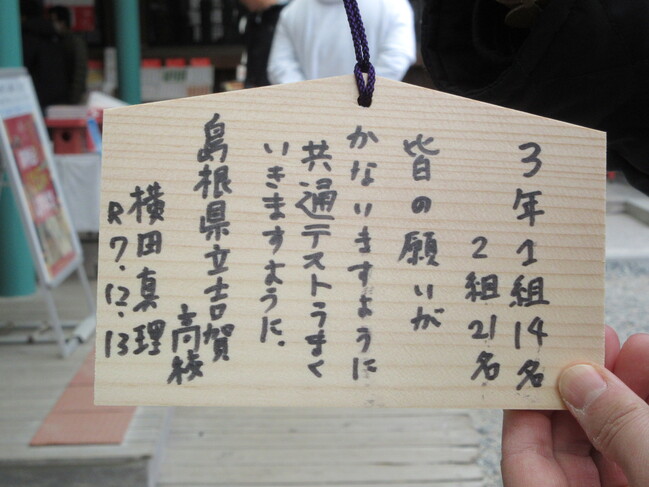 3年1組14名
2組21名
皆の願いが
かないますように
共通テストうまく
いきますように.
島根県立吉賀
高校
横田真理
R7.12.13